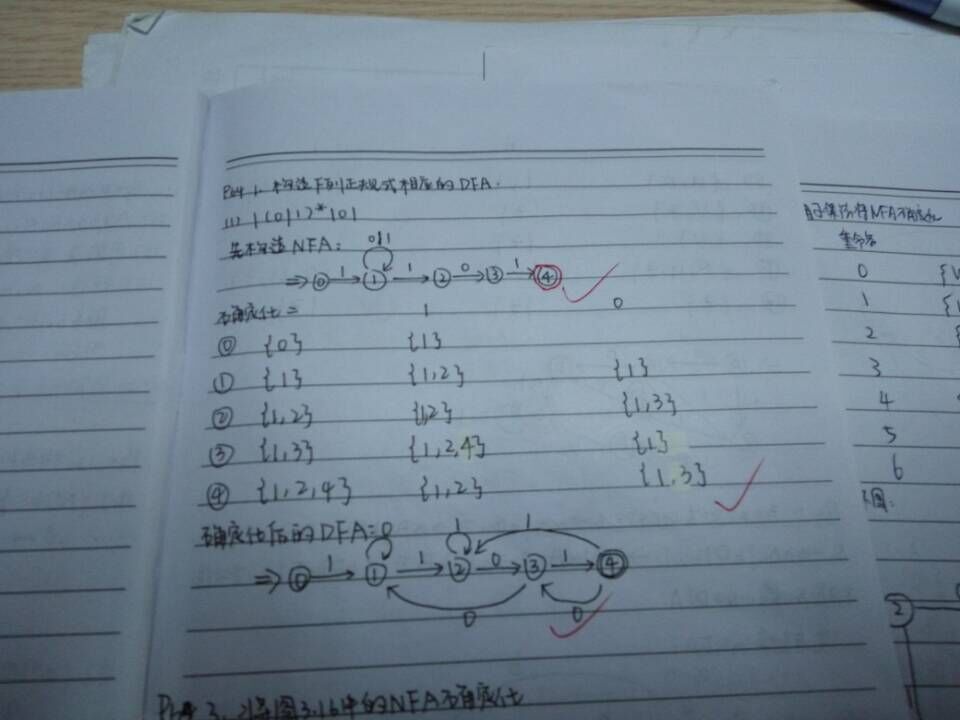 P64 1. 构造下列正规式相应的DFA.
(1) 1(0|1)*101
先构造NFA:
0|1
⇒ ⓪ 1 ① 1 ② 0 ③ 1 ④
确定化: 1 0
⓪ {0} {1}
① {1} {1,2} {1}
② {1,2} {1,2} {1,3}
③ {1,3} {1,2,4} {1}
④ {1,2,4} {1,2} {1,3}
确定化后的DFA:
0 1 1
⇒ ⓪ 1 ① 1 ② 0 ③ 1 ④
0 0
3. 将图3.16中的NFA确定化
NFA确定化
重命名
0
1
2
3
4
5
6
图:
2